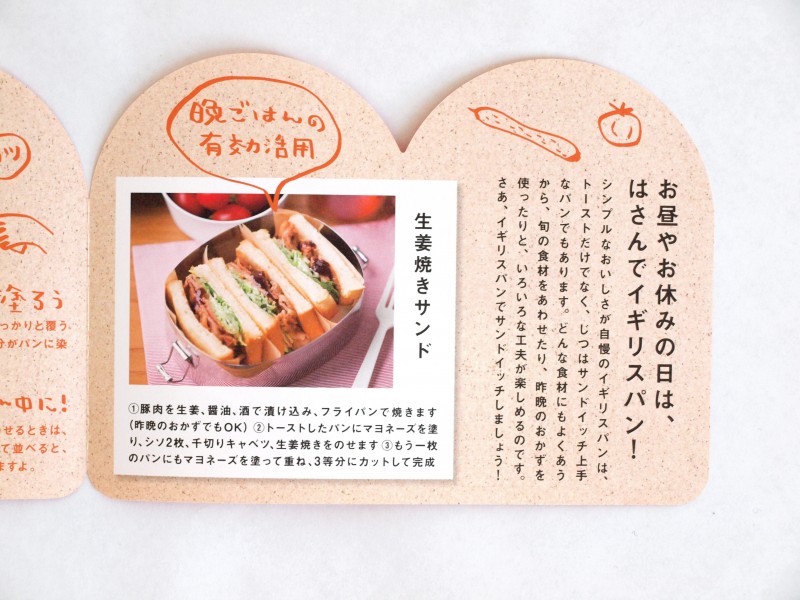 お昼やお休みの日は、
はさんでイギリスパン！
シンプルなおいしさが自慢のイギリスパンは、
トーストだけでなく、じつはサンドイッチ上手
なパンでもあります。どんな食材にもよくあう
から、旬の食材をあわせたり、昨晩のおかずを
使ったりと、いろいろな工夫が楽しめるのです。
さあ、イギリスパンでサンドイッチしましょう！
晩ごはんの
有効活用
生姜焼きサンド
①豚肉を生姜、醤油、酒で漬け込み、フライパンで焼きます
(昨晩のおかずでもOK) ②トーストしたパンにマヨネーズを塗
り、シソ2枚、千切りキャベツ、生姜焼きをのせます ③もう一枚
のパンにもマヨネーズを塗って重ね、3等分にカットして完成
ツ
塗ろう
っかりと覆う
分がパンに染
中に！
せるときは、
て並べると、
ますよ。